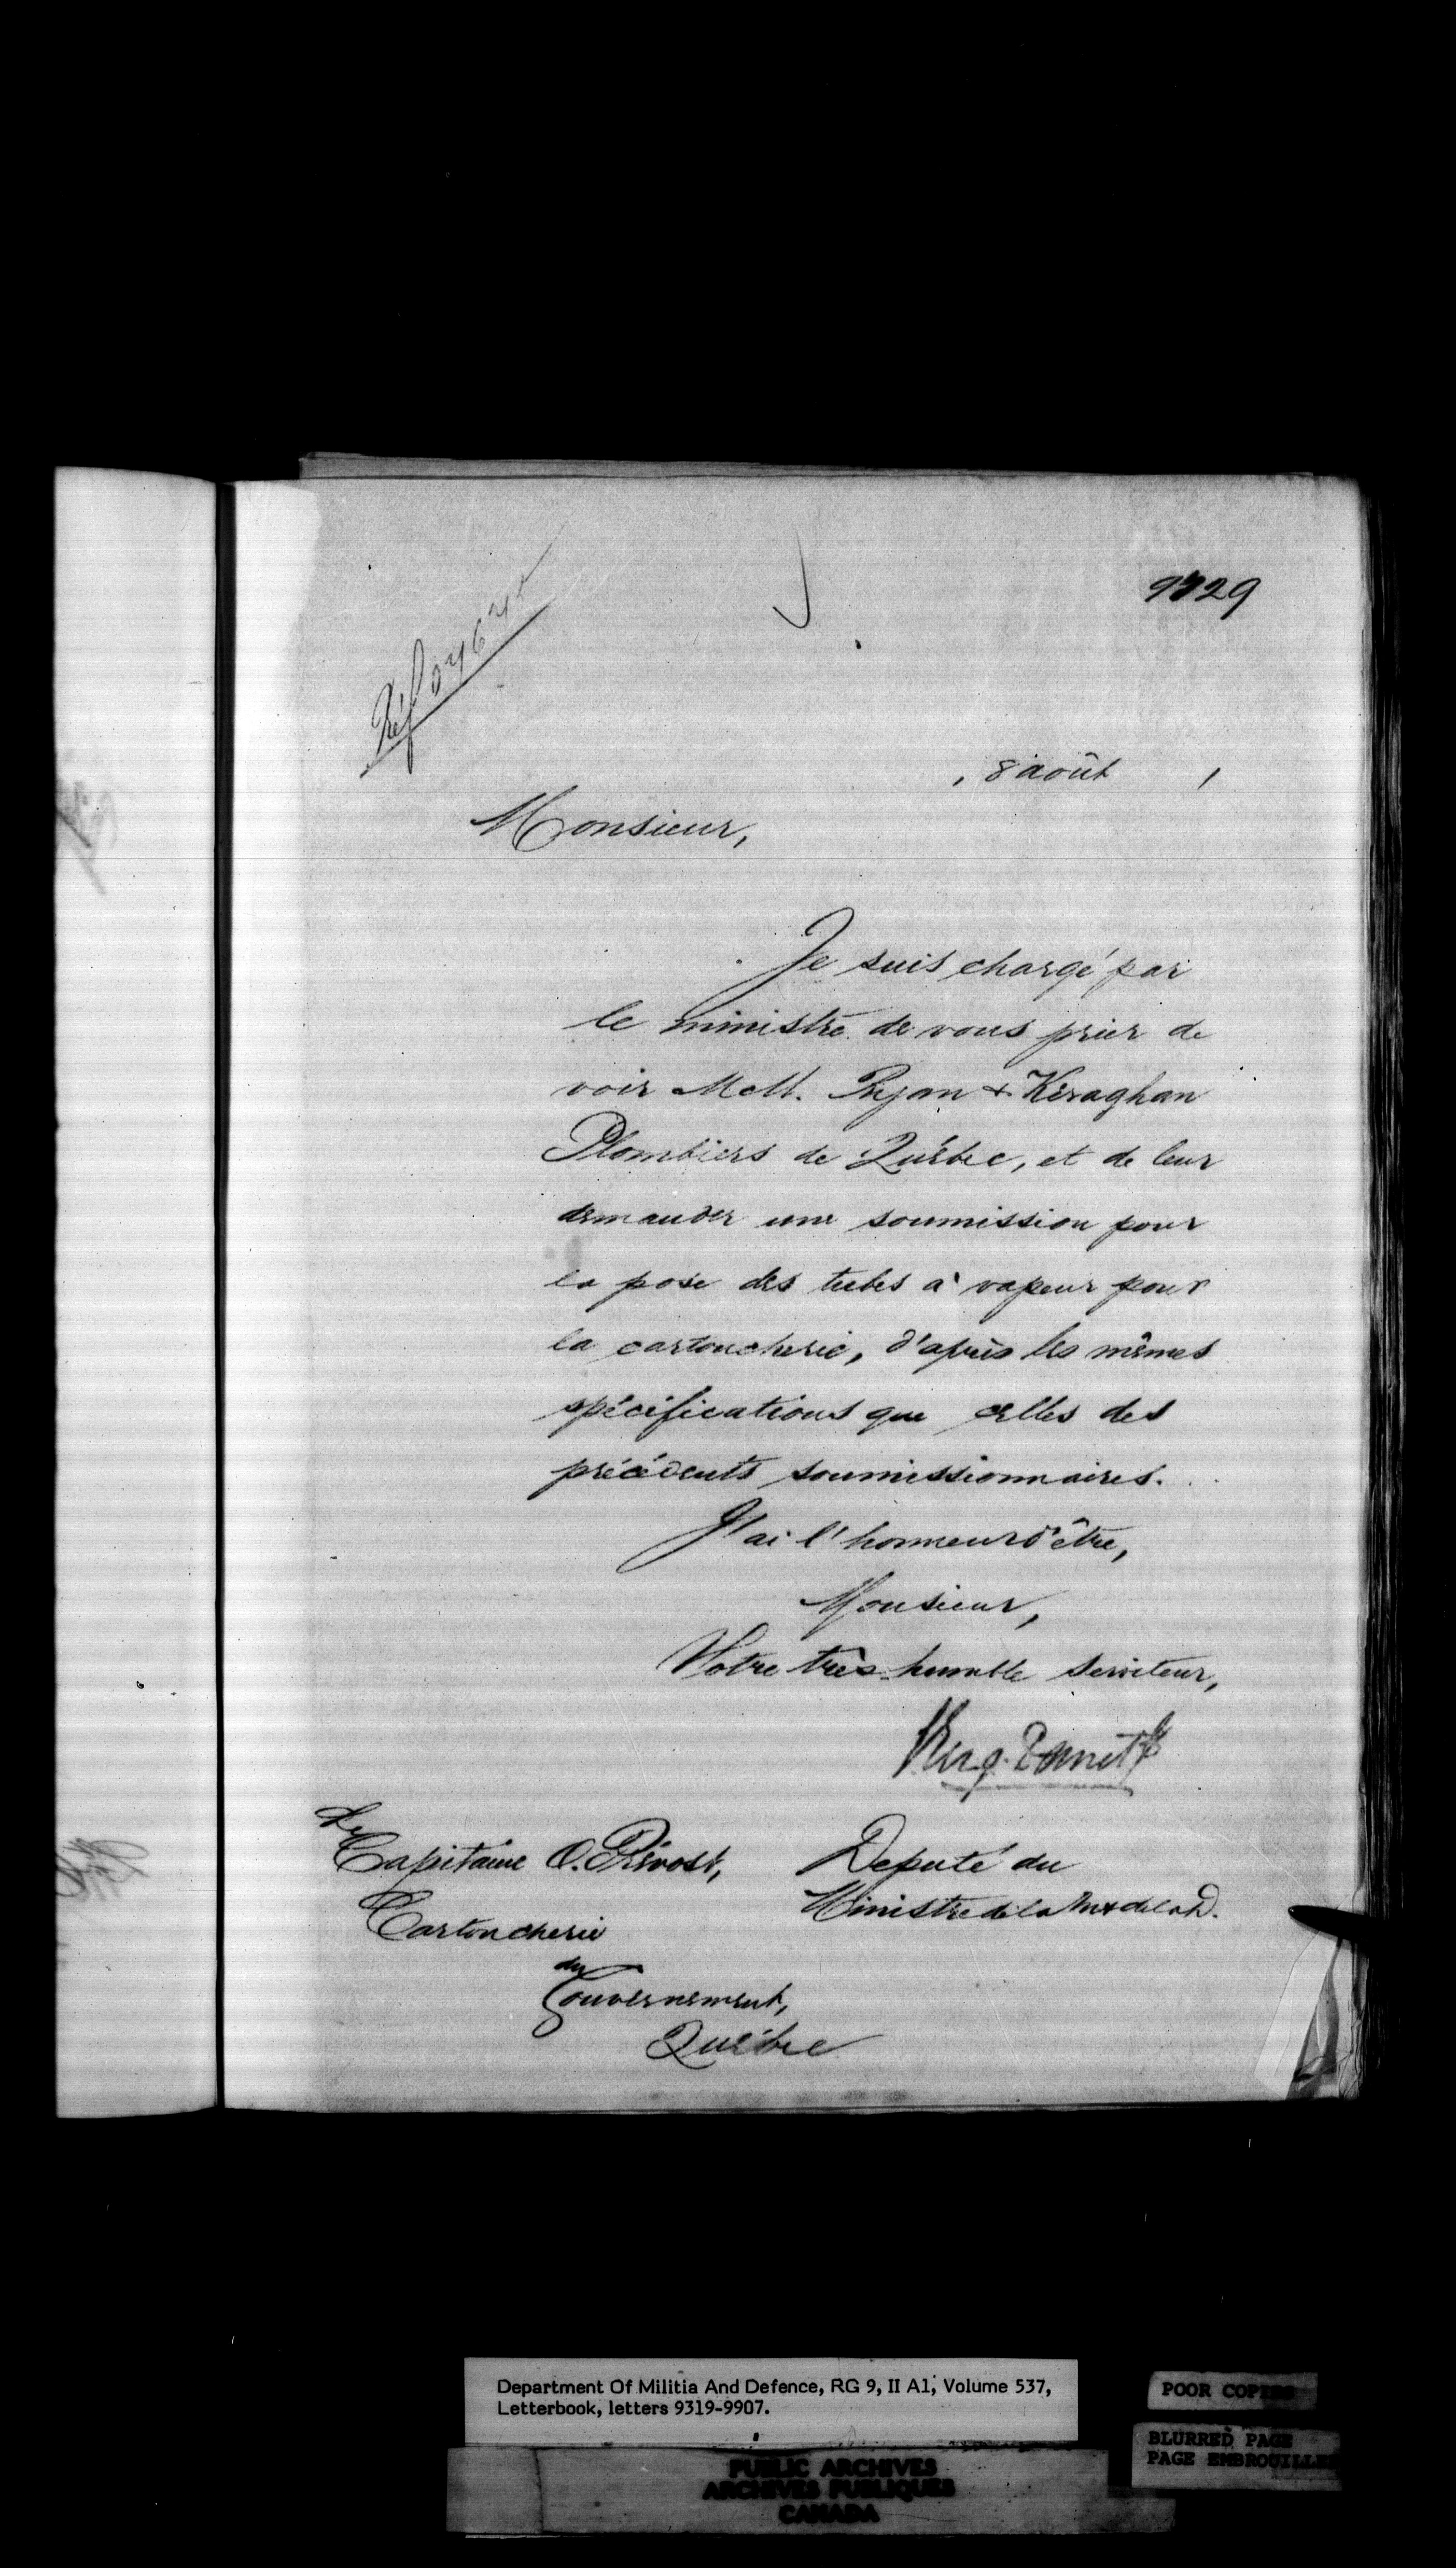 9729
Réf 04640
, 8 août ,
Monsieur,
Je suis chargé par
le ministre de vous prier de
voir MM. Ryan & Keraghan
Plombiers de Québec, et de leur
demander une soumission pour
la pose des tubes à vapeur pour
la cartoucherie, d'après les mêmes
spécifications que celles des
précédents soumissionnaires.
J'ai l'honneur d'être,
Monsieur,
Votre très humble serviteur,
Le
Capitaine O. Prévost,
Cartoucherie
du
Gouvernement,
Québec
Député du
Ministre de la M & de la D.
Department Of Militia And Defence, RG 9, II A1, Volume 537,
Letterbook, letters 9319-9907.
POOR COPIES
BLURRED PAGE
PAGE EMBROUILLEE
PUBLIC ARCHIVES
ARCHIVES PUBLIQUES
CANADA